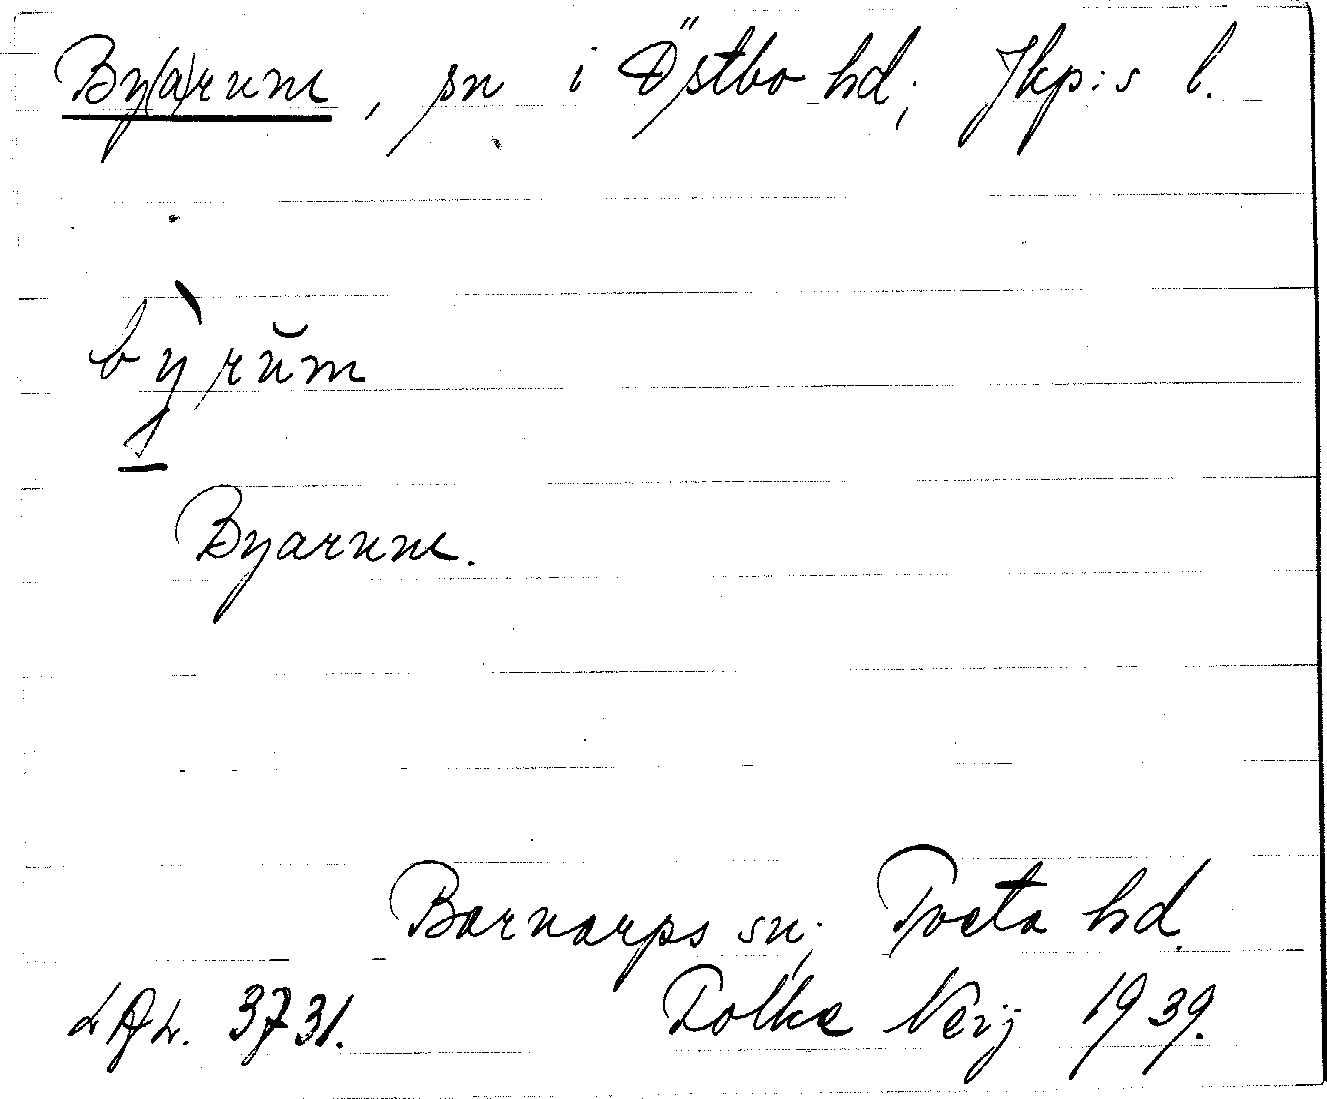 By(a)rum, sn i Östbo hd, Jkp:s l.
bỳrŭm
Byarum.
Barnarps sn, Tveta hd.
LAL. 3731. Folke Neij 1939.